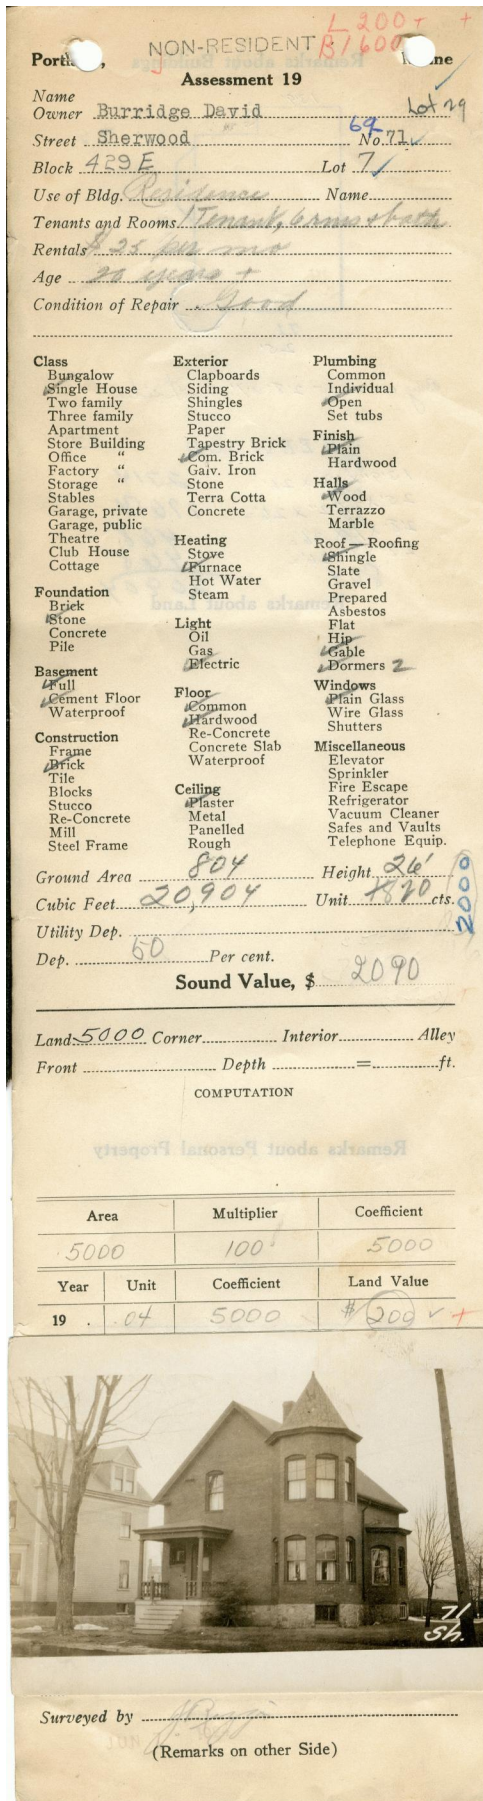 L 200 +  +
NON-RESIDENT B 1600
Portland, Maine
Assessment 19
Name
Owner Burridge David Lot 29
69
Street Sherwood No. 71
Block 429 E Lot 7
Use of Bldg. Residence Name
Tenants and Rooms 1 Tenant, 6 rms + bath
Rentals $25 per mo
Age 20 years +
Condition of Repair Good
Class
Bungalow
Single House
Two family
Three family
Apartment
Store Building
Office "
Factory "
Storage "
Stables
Garage, private
Garage, public
Theatre
Club House
Cottage
Foundation
Brick
Stone
Concrete
Pile
Basement
Full
Cement Floor
Waterproof
Construction
Frame
Brick
Tile
Blocks
Stucco
Re-Concrete
Mill
Steel Frame
Exterior
Clapboards
Siding
Shingles
Stucco
Paper
Tapestry Brick
Com. Brick
Galv. Iron
Stone
Terra Cotta
Concrete
Heating
Stove
Furnace
Hot Water
Steam
Light
Oil
Gas
Electric
Floor
Common
Hardwood
Re-Concrete
Concrete Slab
Waterproof
Ceiling
Plaster
Metal
Panelled
Rough
Plumbing
Common
Individual
Open
Set tubs
Finish
Plain
Hardwood
Halls
Wood
Terrazzo
Marble
Roof — Roofing
Shingle
Slate
Gravel
Prepared
Asbestos
Flat
Hip
Gable
Dormers 2
Windows
Plain Glass
Wire Glass
Shutters
Miscellaneous
Elevator
Sprinkler
Fire Escape
Refrigerator
Vacuum Cleaner
Safes and Vaults
Telephone Equip.
Ground Area 804 Height 26'
Cubic Feet 20,904 Unit 20 cts.
2000
Utility Dep.
Dep. 50 Per cent.
Sound Value, $ 2090
Land 5000 Corner Interior Alley
Front Depth = ft.
COMPUTATION
Remarks about Personal Property
Area Multiplier Coefficient
5000 100 5000
Year Unit Coefficient Land Value
19 . .04 5000 $ 200 +
71
Sh.
Surveyed by
(Remarks on other Side)